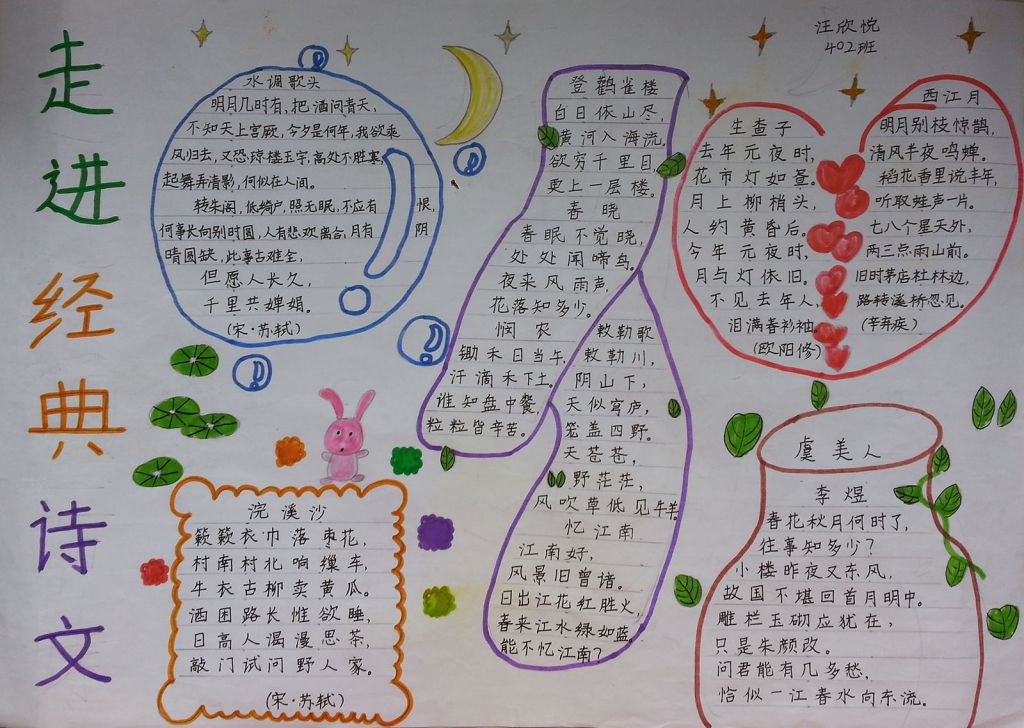 走进经典诗文
汪欣悦
402班
水调歌头
明月几时有,把酒问青天,
不知天上宫厥,今夕是何年,我欲乘
风归去,又恐琼楼玉宇,高处不胜寒,
起舞弄清影,何似在人间。
转朱阁,低绮户,照无眠,不应有恨,
何事长向别时圆,人有悲欢离合,月有阴
晴圆缺,此事古难全,
但愿人长久,
千里共婵娟。
(宋·苏轼)
浣溪沙
簌簌衣巾落枣花,
村南村北响缫车,
牛衣古柳卖黄瓜。
酒困路长惟欲睡,
日高人渴漫思茶,
敲门试问野人家。
(宋·苏轼)
登鹳雀楼
白日依山尽,
黄河入海流。
欲穷千里目,
更上一层楼。
春晓
春眠不觉晓,
处处闻啼鸟。
夜来风雨声,
花落知多少。
悯农
锄禾日当午,
汗滴禾下土。
谁知盘中餐,
粒粒皆辛苦。
敕勒歌
敕勒川,
阴山下,
天似穹庐,
笼盖四野。
天苍苍,
野茫茫,
风吹草低见牛羊。
忆江南
江南好,
风景旧曾谙。
日出江花红胜火,
春来江水绿如蓝,
能不忆江南?
生查子
去年元夜时,
花市灯如昼。
月上柳梢头,
人约黄昏后。
今年元夜时,
月与灯依旧。
不见去年人,
泪满春衫袖。
(欧阳修)
西江月
明月别枝惊鹊,
清风半夜鸣蝉。
稻花香里说丰年,
听取蛙声一片。
七八个星天外,
两三点雨山前。
旧时茅店社林边,
路转溪桥忽见。
(辛弃疾)
虞美人
李煜
春花秋月何时了,
往事知多少?
小楼昨夜又东风,
故国不堪回首月明中。
雕栏玉砌应犹在,
只是朱颜改。
问君能有几多愁,
恰似一江春水向东流。